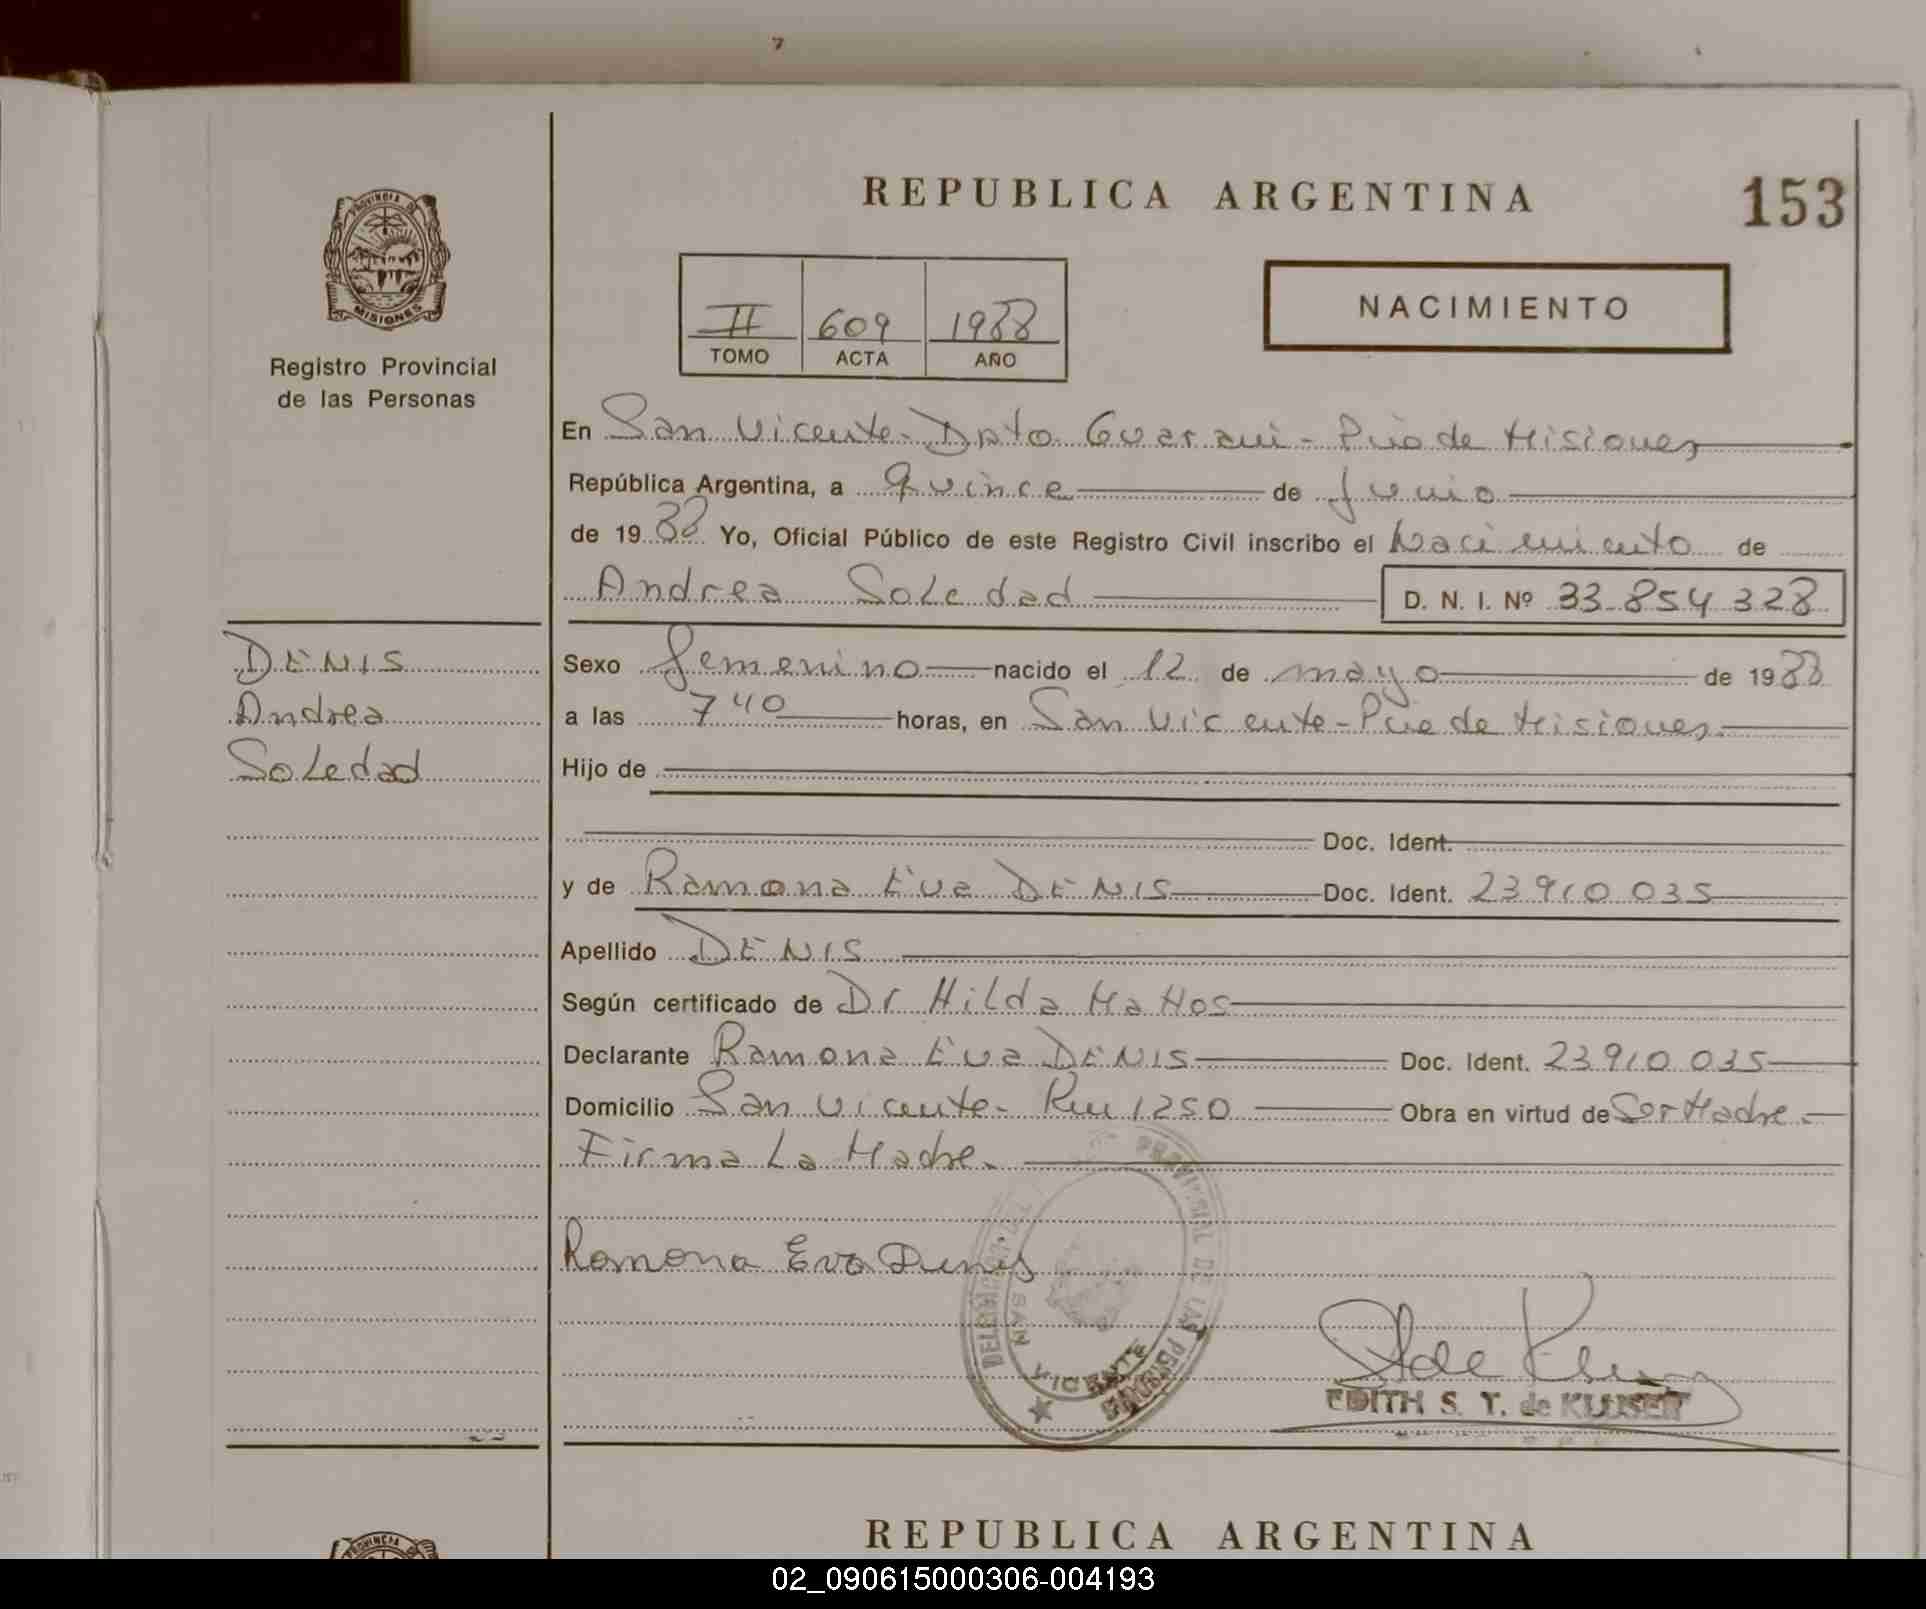 REPUBLICA ARGENTINA
153
PROVINCIA DE
MISIONES
Registro Provincial
de las Personas
II 609 1988
TOMO ACTA AÑO
NACIMIENTO
En San Vicente - Dpto Guarani - Pcia de Misiones
República Argentina, a Quince de Junio
de 1988 Yo, Oficial Público de este Registro Civil inscribo el Nacimiento de
Andrea Soledad D. N. I. Nº 33.854.328
DENIS
Andrea
Soledad
Sexo femenino nacido el 12 de mayo de 1988
a las 7 40 horas, en San Vicente - Pcia de Misiones.
Hijo de
Doc. Ident.
y de Ramona Eva DENIS Doc. Ident. 23.910.035
Apellido DENIS
Según certificado de Dr Hilda Mattos
Declarante Ramona Eva DENIS Doc. Ident. 23.910.035
Domicilio San Vicente - Km 1250 Obra en virtud de Ser Madre.-
Firma La Madre.
Ramona Eva Denis
SAN VICENTE
EDITH S. T. de KLUSEN
REPUBLICA ARGENTINA
02_090615000306-004193